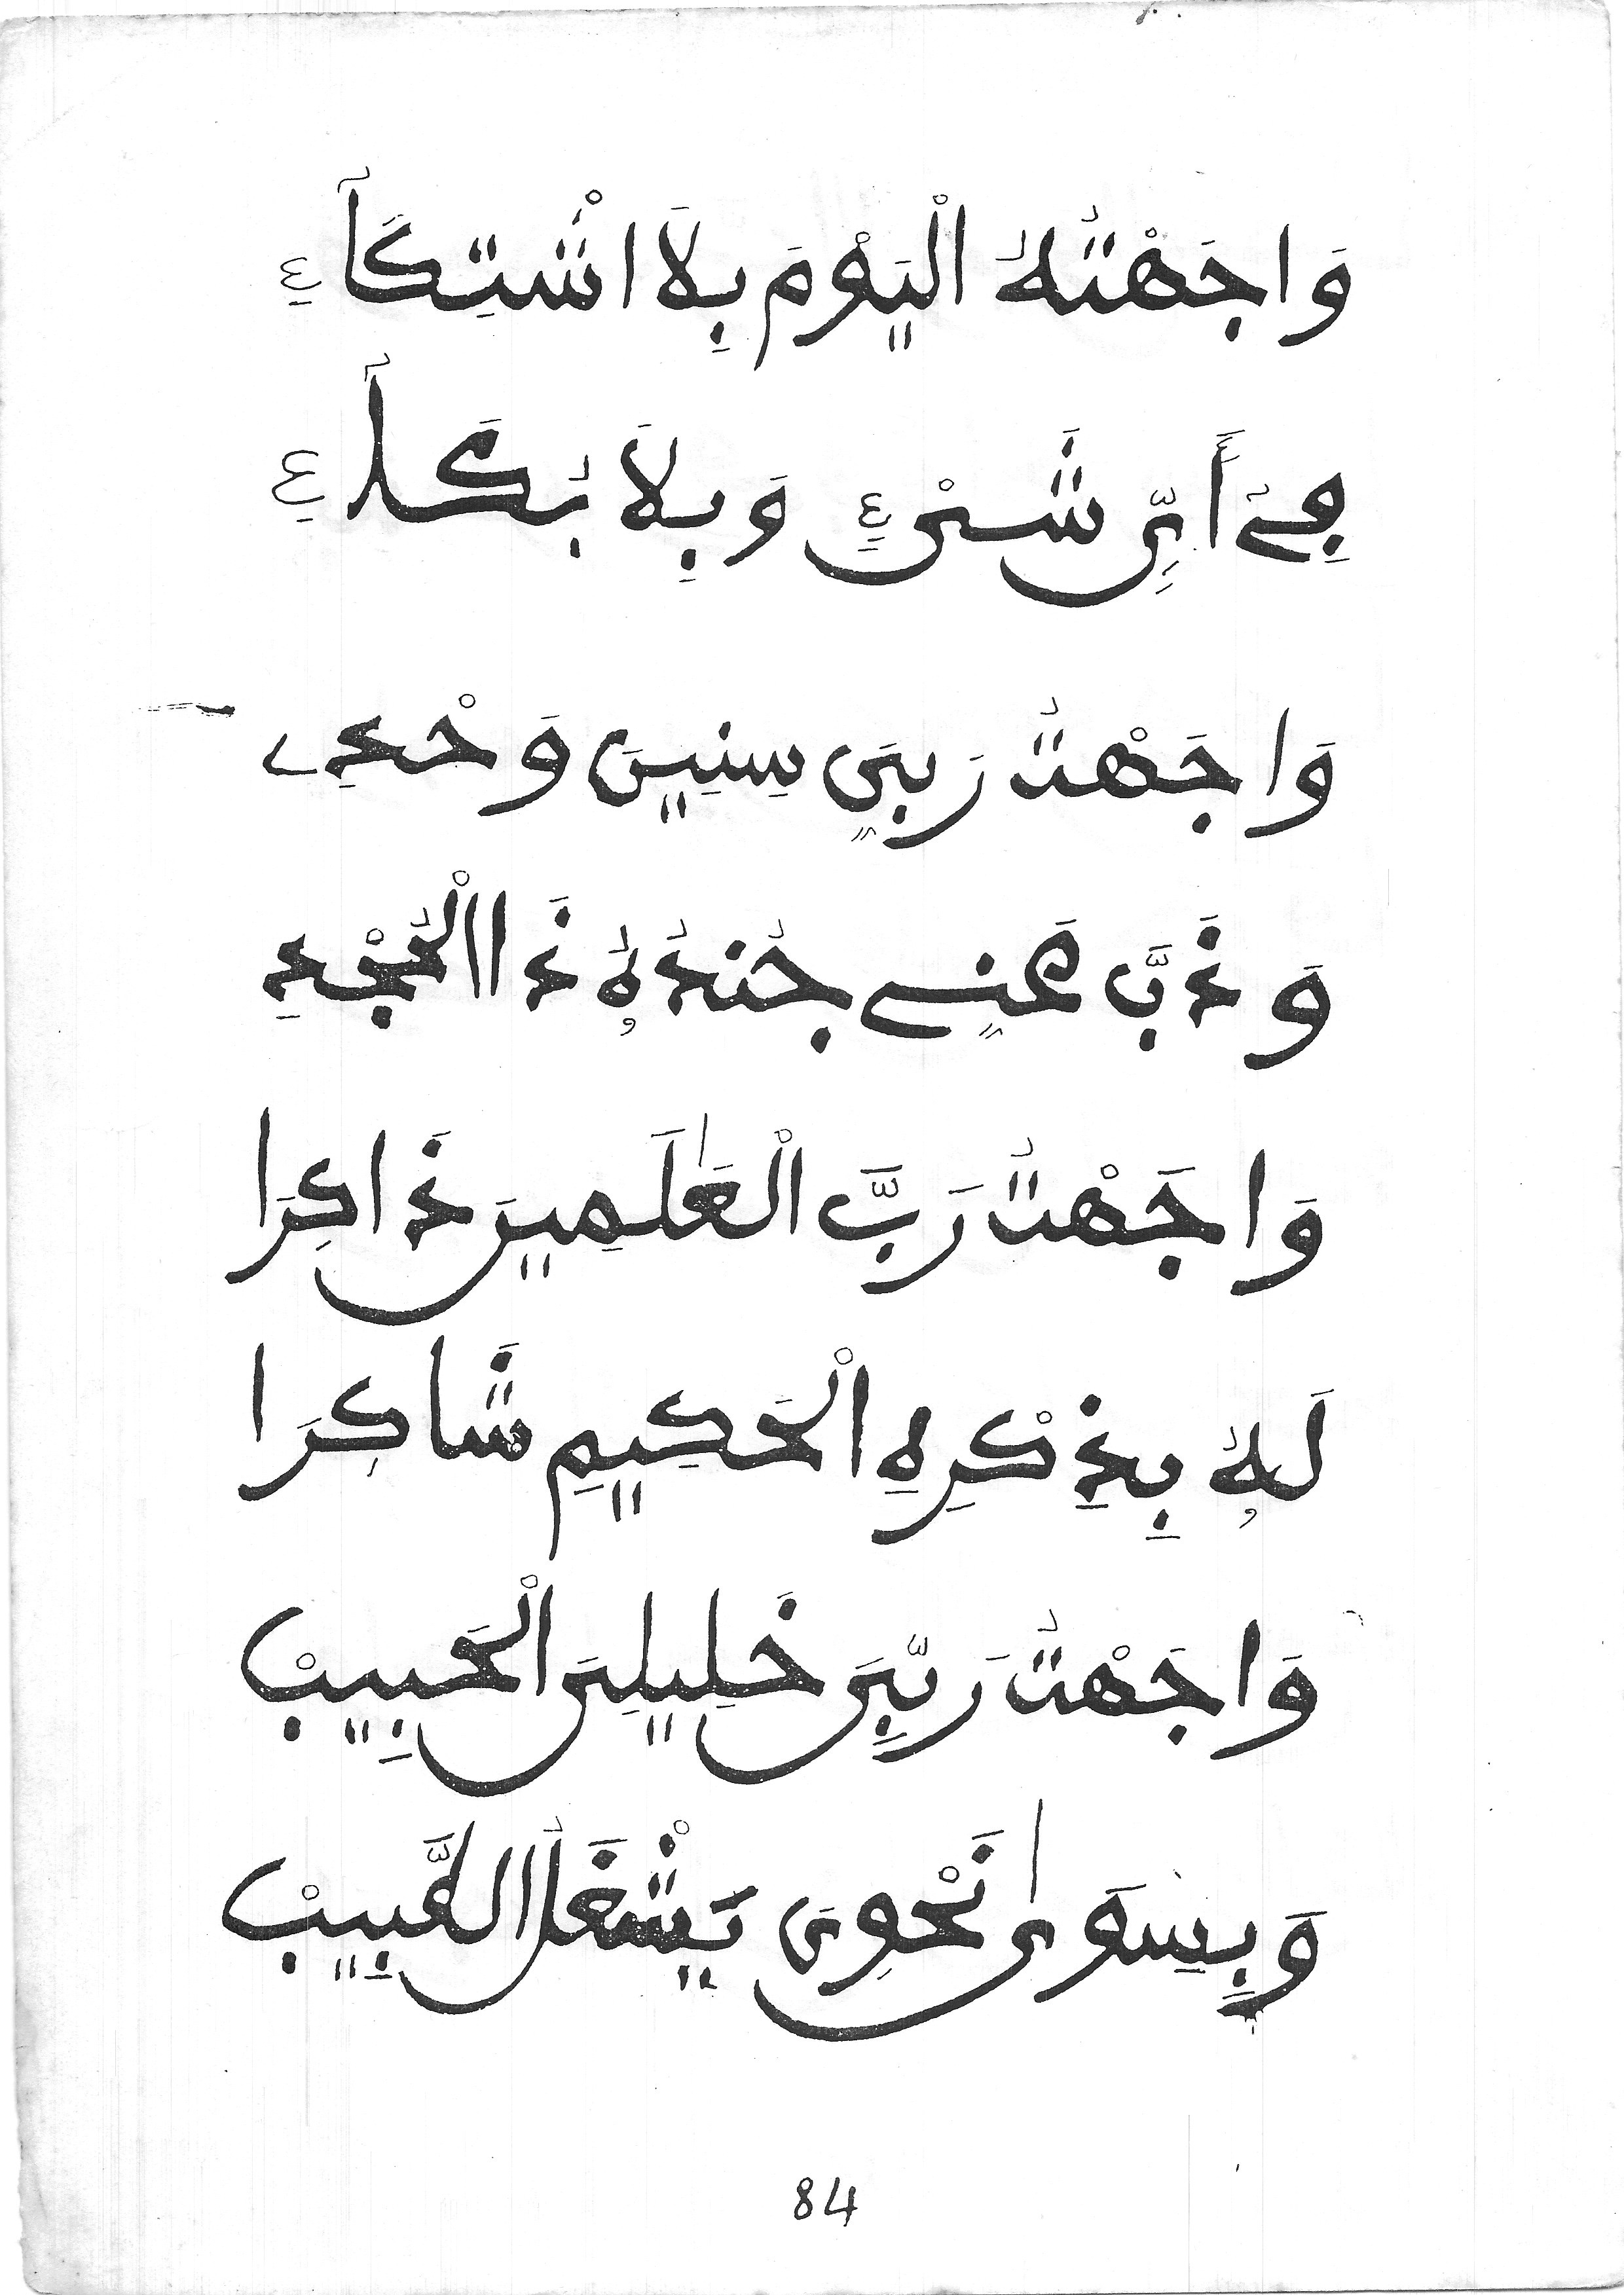 وَاجَهْتُهُ الْيَوْمَ بِلَا اشْتِكَآءِ
مِنْ أَيِّ شَيْءٍ وَبِلَا بُكَآءِ
وَاجَهْتُ رَبِّي سِنِينَ وَحْدِے
وَذَبَّ عَنِّے جُنْدُهُ ذَا الْمَجْدِ
وَاجَهْتُ رَبَّ الْعَٰلَمِينَ ذَاكِرَا
لَهُ بِذِكْرِهِ الْحَكِيمِ شَاكِرَا
وَاجَهْتُ رَبِّيَ خَلِيلِيَ الْحَبِيبْ
وَبِسِوَىٰ نَحْوِيَ يَشْغَلُ
84